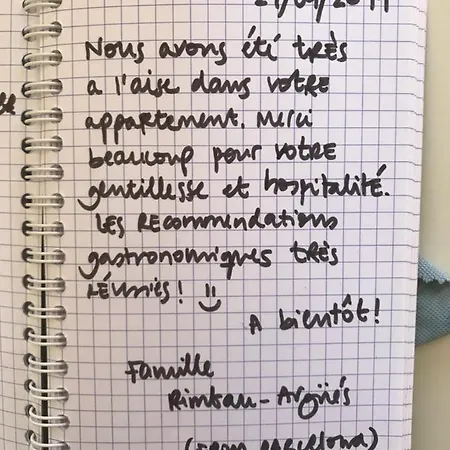 Nous avons été TRÈS
a l'aise dans VOTRE
appartement. Merci
beaucoup pour VOTRE
gentillesse et hospitalité.
LES RECOMMENDATIONS
gastronomiques TRÈS
RÉUSSIES!
A bientôt!
Famille
Rimbau-Argüés
(FROM BARCELONA)